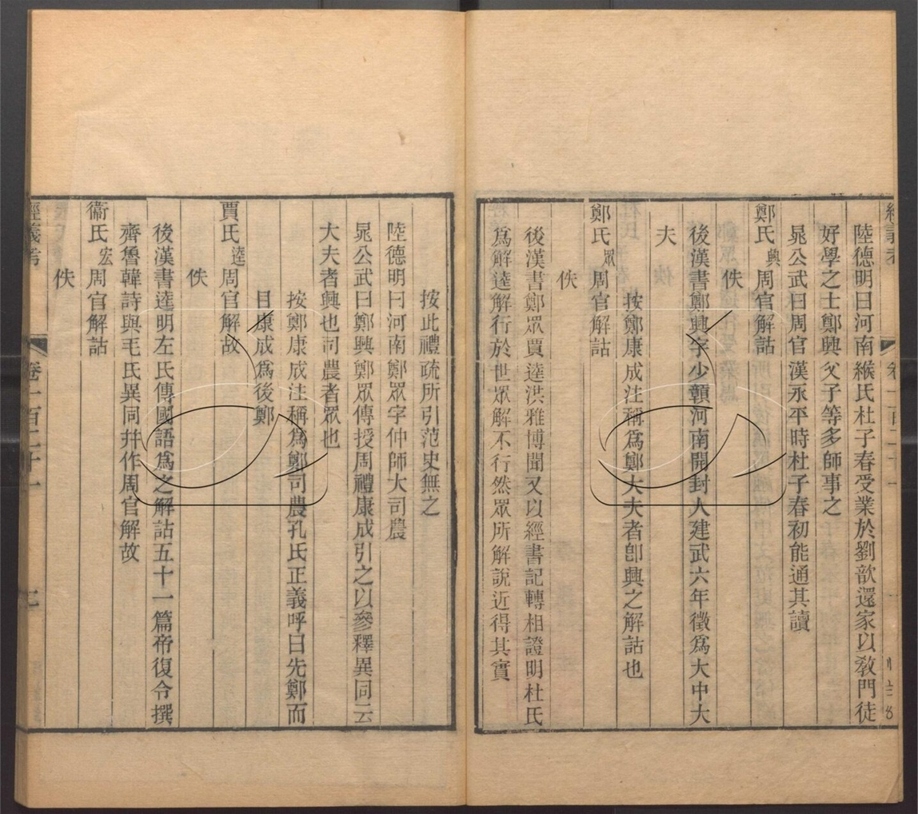 陸德明曰河南緱氏杜子春受業於劉歆還家以敎門徒
好學之士鄭興父子等多師事之
晁公武曰周官漢永平時杜子春初能通其讀
鄭氏興周官解詁
佚
後漢書鄭興字少贛河南開封人建武六年徵爲大中大
夫
按鄭康成注稱爲鄭大夫者卽興之解詁也
鄭氏眾周官解詁
佚
後漢書鄭眾賈逵洪雅博聞又以經書記轉相證明杜氏
爲解逵解行於世眾解不行然眾所解說近得其實
按此禮疏所引范史無之
陸德明曰河南鄭眾字仲師大司農
晁公武曰鄭興鄭眾傳授周禮康成引之以參釋異同云
大夫者興也司農者眾也
按鄭康成注稱爲鄭司農孔氏正義呼曰先鄭而
目康成爲後鄭
賈氏逵周官解故
佚
後漢書逵明左氏傳國語爲之解詁五十一篇帝復令撰
齊魯韓詩與毛氏異同幷作周官解故
衞氏宏周官解詁
佚
經義考 卷一百二十一 二